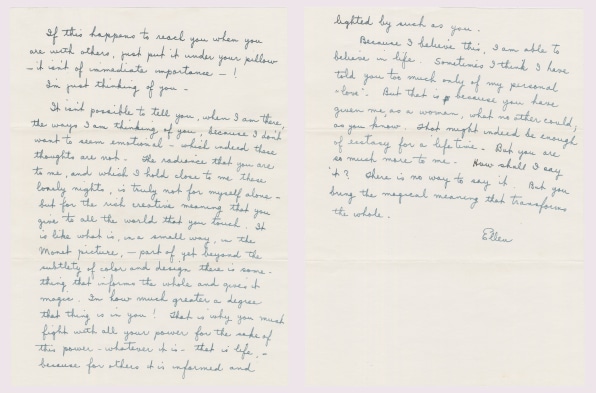 If this happens to reach you when you
are with others, just put it under your pillow
— it isn't of immediate importance — !
I'm just thinking of you —
It isn't possible to tell you, when I am there,
the ways I am thinking of you, because I don't
want to seem emotional — which indeed those
thoughts are not. The radiance that you are
to me, and which I hold close to me these
lonely nights, is truly not for myself alone —
but for the rich creative meaning that you
give to all the world that you touch. It
is like what is, in a small way, in the
Monet picture, — part of, yet beyond the
subtlety of color and design there is some-
thing that informs the whole and gives it
magic. In how much greater a degree
that thing is in you! That is why you must
fight with all your power for the sake of
this power — whatever it is — that is life, —
because for others it is informed and
lighted by such as you.
Because I believe this, I am able to
believe in life. Sometimes I think I have
told you too much only of my personal
"love". But that is because you have
given me, as a woman, what no other could,
as you know. That might indeed be enough
of ecstasy for a lifetime. But you are
so much more to me. How shall I say
it? There is no way to say it. But you
bring the magical meaning that transforms
the whole.
Ellen